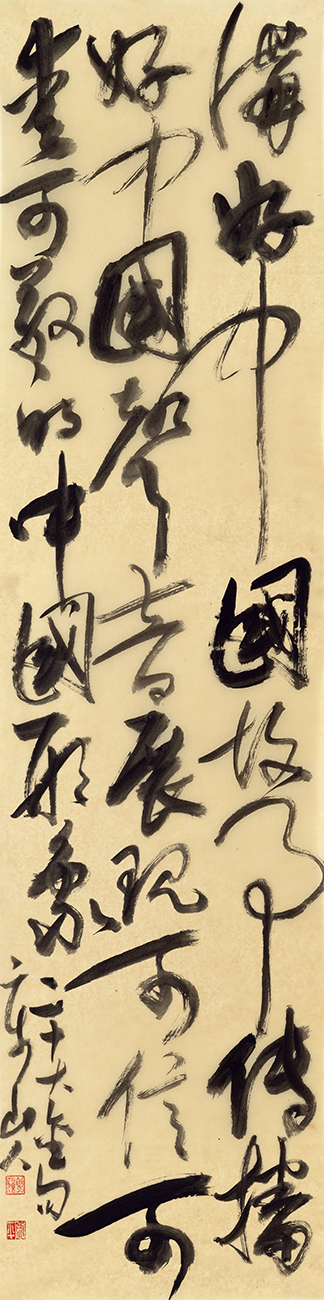 講好中國故事傳播
好中國聲音展現可信可
愛可敬的中國形象
二十大金句
山人